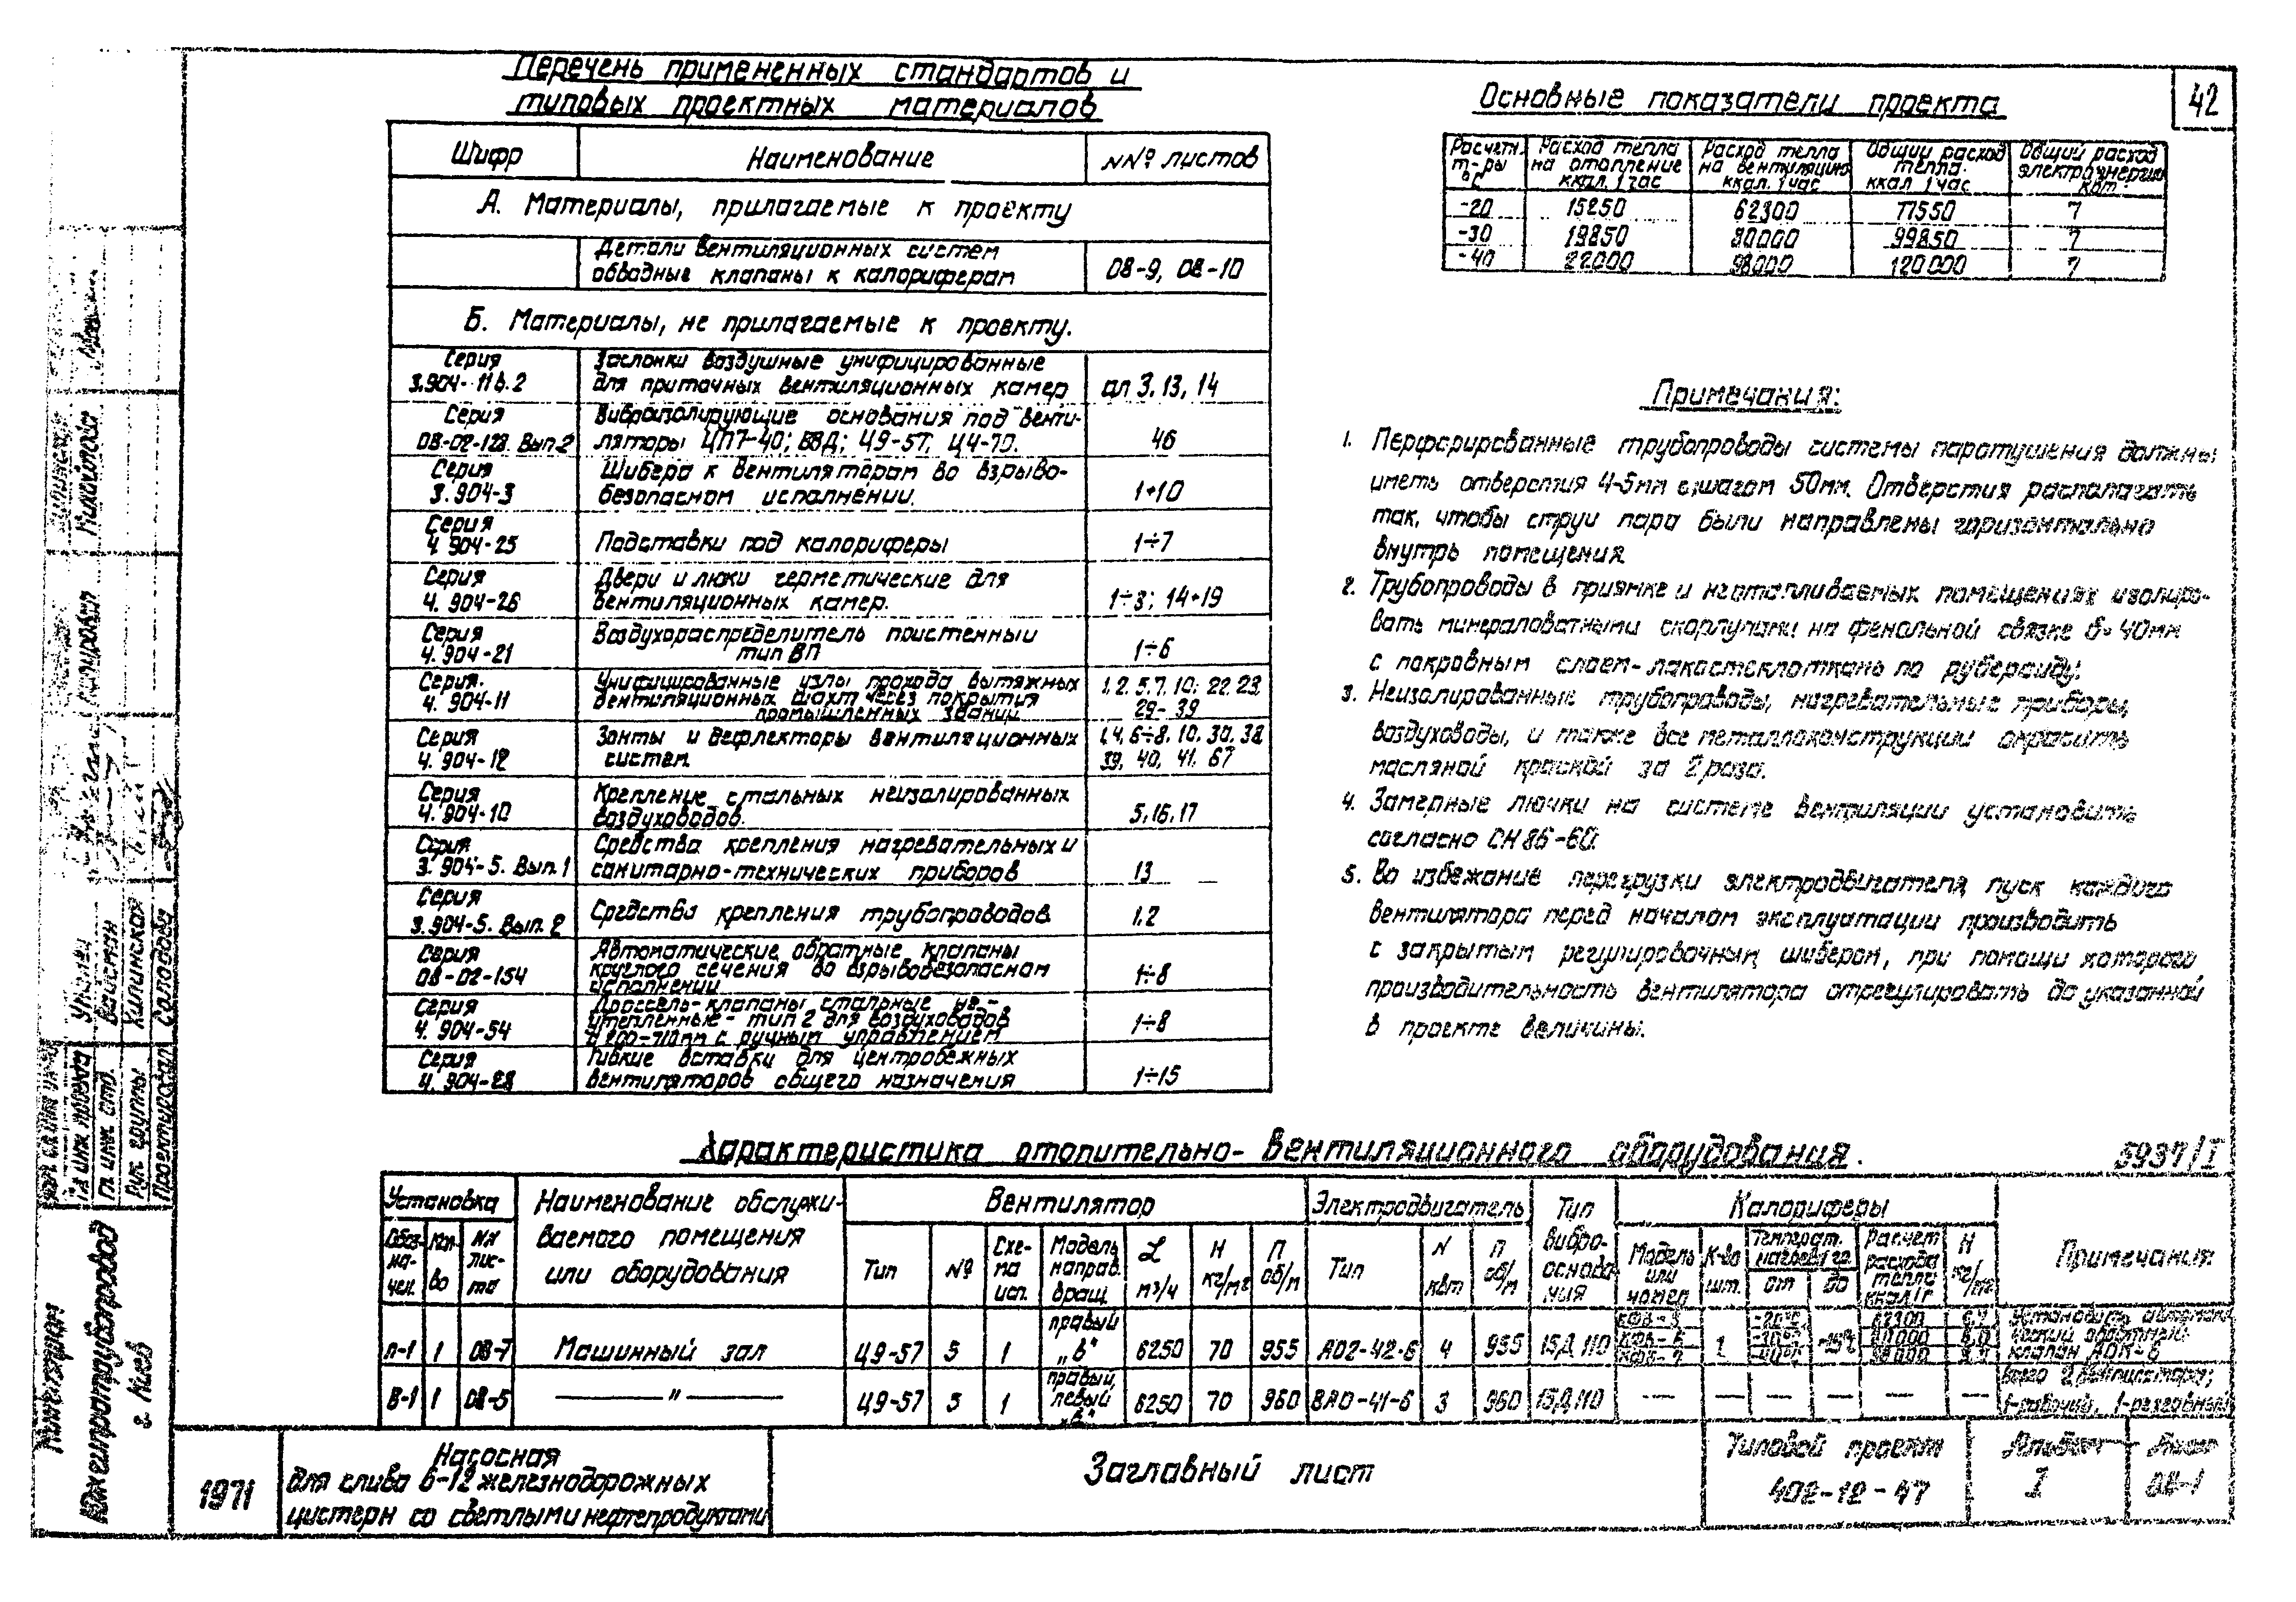 42
Перечень примененных стандартов и
типовых проектных материалов
Шифр Наименование NNº листов
А. Материалы, прилагаемые к проекту
Детали вентиляционных систем
обводные клапаны к калориферам 08-9, 08-10
Б. Материалы, не прилагаемые к проекту.
Серия 3.904-11 в.2
Заслонки воздушные унифицированные
для приточных вентиляционных камер ал 3, 13, 14
Серия 08-02-128. Вып.2
Виброизолирующие основания под венти-
ляторы ЦП7-40; ВВД; Ц9-57, Ц4-70. 46
Серия 3.904-3
Шибера к вентиляторам во взрыво-
безопасном исполнении. 1÷10
Серия 4.904-25
Подставки под калориферы 1÷7
Серия 4.904-26
Двери и люки герметические для
вентиляционных камер. 1÷3; 14÷19
Серия 4.904-21
Воздухораспределитель пристенный
тип ВП 1÷6
Серия 4.904-11
Унифицированные узлы прохода вытяжных
вентиляционных шахт через покрытия
промышленных зданий 1, 2, 5, 7, 10; 22, 23,
29-39
Серия 4.904-12
Зонты и дефлекторы вентиляционных
систем 1,4, 6÷8, 10, 30, 38
39, 40, 41, 67
Серия 4.904-10
Крепление стальных неизолированных
воздуховодов. 5,16,17
Серия 3.904-5. Вып.1
Средства крепления нагревательных и
санитарно-технических приборов 13
Серия 3.904-5. Вып. 2
Средства крепления трубопроводов 1.2
Серия 08-02-154
Автоматические обратные клапаны
круглого сечения во взрывобезопасном
исполнении 1÷8
Серия 4.904-54
Дроссель-клапаны стальные не-
утепленные - тип 2 для воздуховодов
с ручным управлением 1÷8
Серия 4.904-28
Гибкие вставки для центробежных
вентиляторов общего назначения 1÷15
Основные показатели проекта
Расчетн. т-ры °С
Расход тепла на отопление ккал. 1 час
Расход тепла на вентиляцию ккал. 1 час
Общий расход тепла. ккал 1 час
Общий расход электроэнергии квт.
-20 15250 62300 77550 7
-30 19850 80000 99850 7
-40 22000 98000 120000 7
Примечания:
1. Перфорированные трубопроводы системы паротушения должны
иметь отверстия 4-5мм с шагом 50мм. Отверстия располагать
так, чтобы струи пара были направлены горизонтально
внутрь помещения
2. Трубопроводы в приямке и неотапливаемых помещениях изолиро-
вать минераловатными скорлупами на фенольной связке δ=40мм
с покровным слоем-лакостеклоткань по рубероиду.
3. Неизолированные трубопроводы, нагревательные приборы,
воздуховоды, и также все металлоконструкции окрасить
масляной краской за 2 раза.
4. Замерные лючки на системе вентиляции установить
согласно СН 86-60.
5. Во избежание перегрузки электродвигателя, пуск каждого
вентилятора перед началом эксплуатации производить
с закрытым регулировочным шибером, при помощи которого
производительность вентилятора отрегулировать до указанной
в проекте величины.
Характеристика отопительно-вентиляционного оборудования.
5937/I
Установка
Обоз-на-чен. Кол-во NN лис-та
Наименование обслужи-
ваемого помещения
или оборудования
Вентилятор
Тип Nº Схе-ма исп. Модель направ. вращ. L м³/ч Н кг/м² П об/м
Электродвигатель
Тип N квт П об/м
Тип вибро-основа-ния
Калориферы
Модель или номер К-во шт. Температ. нагрева гр. от до Расчет расхода тепла ккал/г Н кг/м²
Примечания
П-1 1 08-7 Машинный зал Ц9-57 5 1 правый „в“ 6250 70 955 АО2-42-6 4 955 15Д 110
-20°С 62300
-30°С 80000
-40°С 98000
Установить
обратный
клапан АОК-6
В-1 1 08-5 — " — Ц9-57 5 1 правый, левый „в“ 6250 70 960 ВАО-41-6 3 960 15Д110 — — — — — —
Всего 2 вентилятора;
1-рабочий, 1-резервный
1971
Насосная
для слива 6-12 железнодорожных
цистерн со светлыми нефтепродуктами
Заглавный лист
Типовой проект
402-12-47
Альбом
I
Лист
ОВ-1
Южгипротрубопровод
г. Киев
Гл инж проекта
Гл. инж. отд. Вайсман
Рук. группы Килинская
Проектировал Соловова